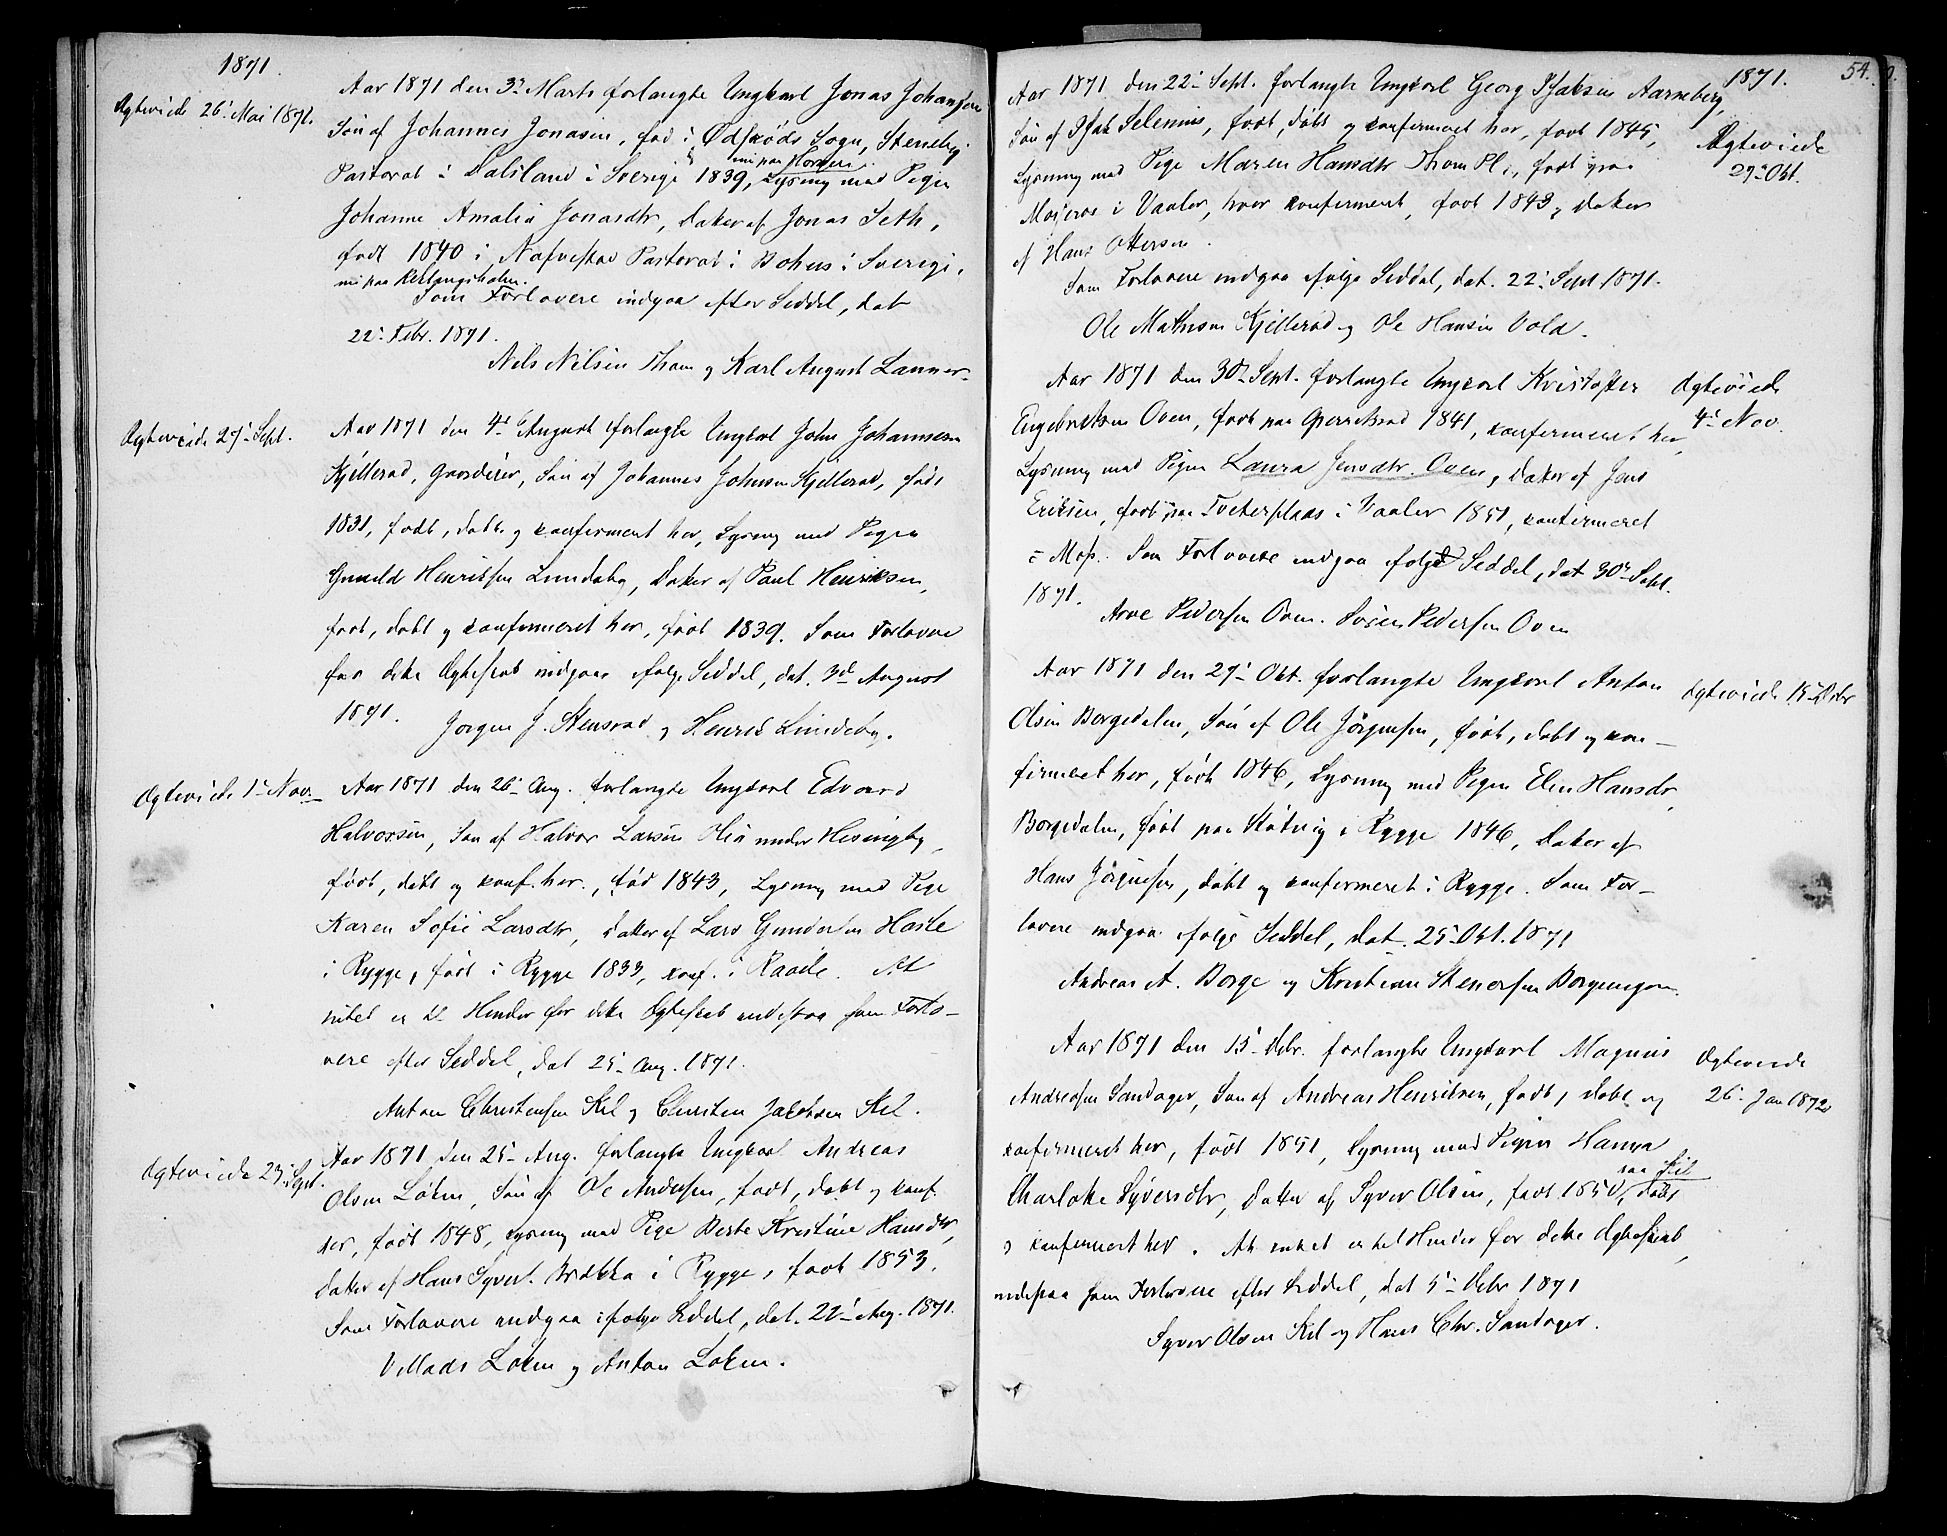 1871.
Ægteviede 26. Mai 1871.
Aar 1871 den 3. Marts forlangte Ungkarl Jonas Johansen
Søn af Johannes Jonasen, fød i Ødskøds Sogn, Steneby
nu paa Horgen
Pastorat i Dalsland i Sverige 1839, Lysning med Pigen
Johanne Amalia Jonasdtr, Datter af Jonas Seth,
født 1840 i Pastorat i Bohus i Sverige,
nu paa
Som Forlovere indgaa efter Seddel, dat
22. Febr. 1871.
Nils Nilsen Thom og Karl August Lanner
Ægteviede 27. Sept.
Aar 1871 den 4. August forlangte Ungkarl John Johannesen
Kjellerød, Gaardeier, Søn af Johannes Johnsen Kjellerød, født
1831, født, døbt og konfirmeret her, Lysning med Pigen
Gunild Henriksen Lundeby, Datter af Paul Henriksen,
født, døbt og konfirmeret her, født 1839. Som Forlovere
for dette Ægteskab indgaa ifølge Seddel, dat. 3d August
1871.
Jørgen J. Stensrød og Henrik Lundeby.
Ægteviede 1. Nov.
Aar 1871 den 26. Aug. forlangte Ungkarl Edvard
Halvorsen, Søn af Halvor Larsen under
født, døbt og konf. her, fød 1843, Lysning med Pige
Karen Sofie Larsdtr, Datter af Lars Gundersen Haste
i Rygge, født i Rygge 1833, konf. i Raade. At
intet er til Hinder for dette Ægteskab indestaa som Forlo-
vere efter Seddel, dat 25. Aug. 1871.
Anton Christensen Kil og Christen Jakobsen Kil.
Ægteviede 23. Sept.
Aar 1871 den 25. Aug. forlangte Ungkarl Andreas
Olsen Løken, Søn af Ole Andersen, født, døbt og konf.
her, født 1848, Lysning med Pige Berte Kristine Hansdtr,
Datter af Hans Syvert. i Rygge, født 1853.
Som Forlovere indgaa ifølge Seddel, dat. 22. Aug. 1871.
Villads Løken og Anton Løken.
1871.
54.
Aar 1871 den 22. Sept. forlangte Ungkarl Georg Isaksen Aarneberg,
Søn af Isak Selenius, født, døbt og konfirmeret her, født 1845,
Lysning med Pige Maren Hansdtr Thom Pl., født paa
i Vaaler, hvor konfirmeret, født 1843, Datter
af Hans Ottersen.
Ægteviede
27. Okt.
Som Forlovere indgaa ifølge Seddel, dat. 22. Sept 1871.
Ole Mathisen Kjellerød og Ole Hansen Vold.
Aar 1871 den 30. Sept. forlangte Ungkarl Kristoffer
Engebretsen Oven, født paa 1841, konfirmeret her,
Ægteviede
4. Nov.
Lysning med Pigen Laura Jensdtr. Oven, Datter af Jens
Eriksen, født paa Tveterplads i Vaaler 1851, konfirmeret
i Moss. Som Forlovere indgaa ifølge Seddel, dat 30. Sept.
1871.
Arve Pedersen Oven. Søren Pedersen Oven
Aar 1871 den 27. Okt. forlangte Ungkarl Anton
Ægteviede 15. Debr
Olsen Borgedalen, Søn af Ole Jörgensen, født, døbt og kon-
firmeret her, født 1846, Lysning med Pigen Elen Hansdtr,
Borgedalen, født paa i Rygge 1846, Datter af
Hans Jörgensen, døbt og konfirmeret i Rygge. Som For-
lovere indgaa ifølge Seddel, dat. 25. Okt. 1871
Andreas A. Borge og Kristian Stenersen Borgeengen.
Aar 1871 den 15. Debr. forlangte Ungkarl Magnus
Ægteviede
26. Jan 1872
Andresen Sandager, Søn af Andreas Henriksen, født, døbt og
konfirmeret her, født 1851, Lysning med Pigen Hanna
paa Kil
Charlotte Syversdtr, Datter af Syver Olsen, født 1850, døbt
og konfirmeret her. At intet er til Hinder for dette Ægteskab,
indestaa som Forlovere efter Seddel, dat 5. Debr 1871
Syver Olsen Kil og Hans Chr. Sandager.